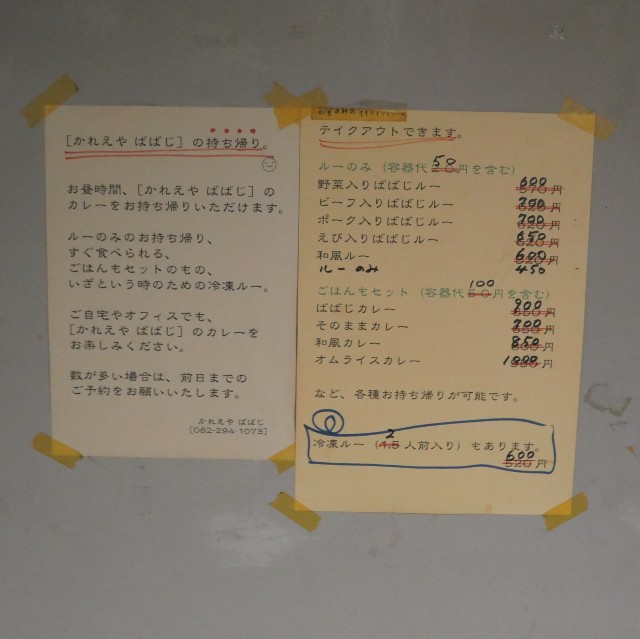 [かれえや ばばじ] の持ち帰り。
お昼時間、[かれえや ばばじ] の
カレーをお持ち帰りいただけます。
ルーのみのお持ち帰り、
すぐ食べられる、
ごはんもセットのもの、
いざという時のための冷凍ルー。
ご自宅やオフィスでも、
[かれえや ばばじ] のカレーを
お楽しみください。
数が多い場合は、前日までの
ご予約をお願いいたします。
かれえや ばばじ
[082-294-1073]
テイクアウトできます。
ルーのみ (容器代 50 円を含む)
野菜入りばばじルー 600 570 円
ビーフ入りばばじルー 700 620 円
ポーク入りばばじルー 700 620 円
えび入りばばじルー 650 620 円
和風ルー 600 520 円
ルーのみ 450
ごはんもセット (容器代 100 50 円を含む)
ばばじカレー 900 円
そのままカレー 円
和風カレー 850 円
オムライスカレー 1000 円
など、各種お持ち帰りが可能です。
冷凍ルー (2 1.5 人前入り) もあります。
600 520 円